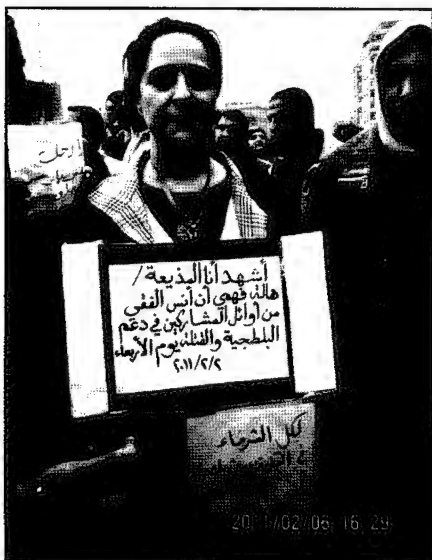 ارحل
أشهد أنا المذيعة /
هالة فهمي أن أنس الفقي
من أوائل المشاركين في دعم
البلطجية والقتلة يوم الأربعاء
٢٠١١/٢/٢
لكل الشرفاء
2011/02/06 16:29